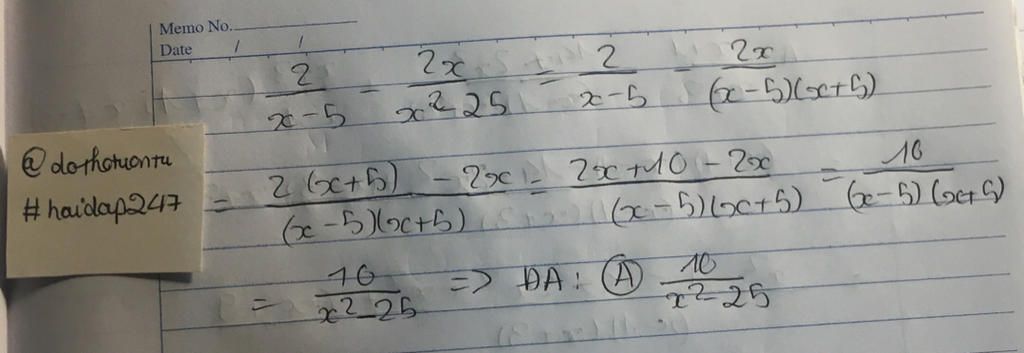 Memo No.
Date / /
2/(x-5) - 2x/(x²-25) = 2/(x-5) - 2x/((x-5)(x+5))
@dothotuontu
#haidap247
= (2(x+5) - 2x)/((x-5)(x+5)) = (2x+10-2x)/((x-5)(x+5)) = 10/((x-5)(x+5))
= 10/(x²-25) => ĐA: Ⓐ 10/(x²-25)